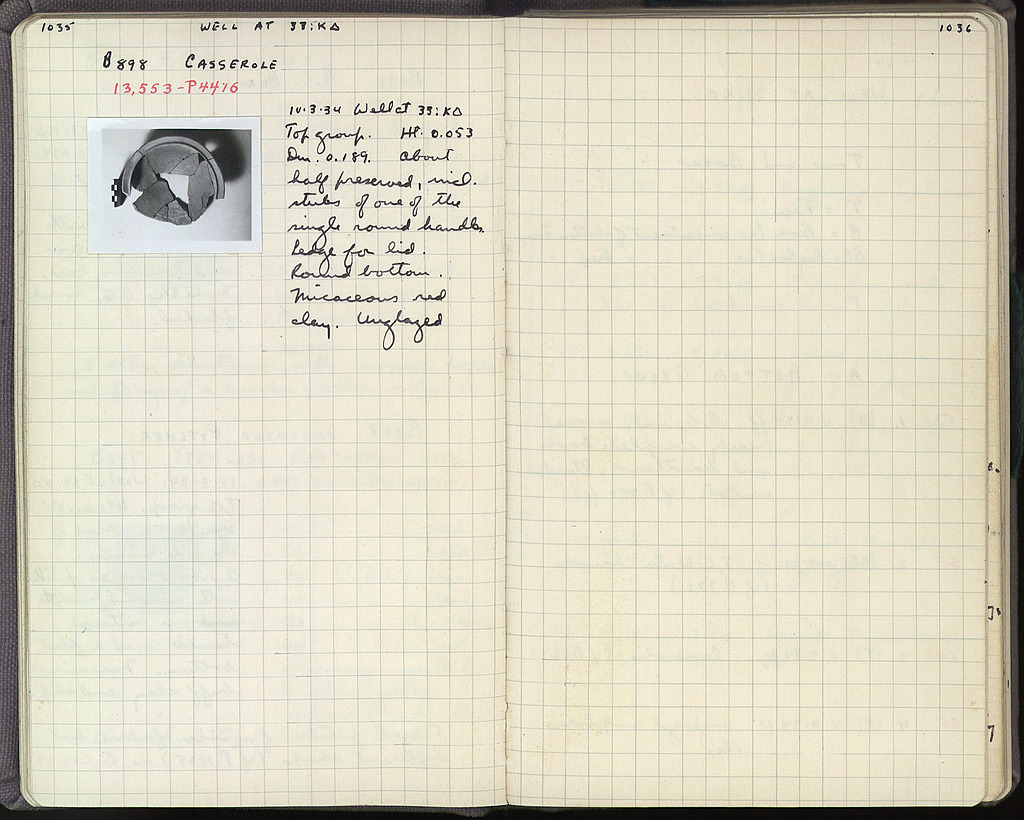 1035
WELL AT 33:KΔ
B898 CASSEROLE
13,553-P4476
IV.3.34 Well at 33:KΔ
Top group. Ht. 0.053
Dm. 0.189. About
half preserved, incl.
stubs of one of the
single round handles.
Ledge for lid.
Round bottom.
Micaceous red
clay. Unglazed
1036